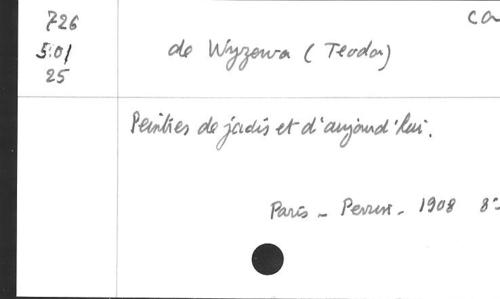 726
5:01
25
ca
de Wyzewa (Teodor)
Peintres de jadis et d'aujourd'hui.
Paris - Perrin - 1908 8º